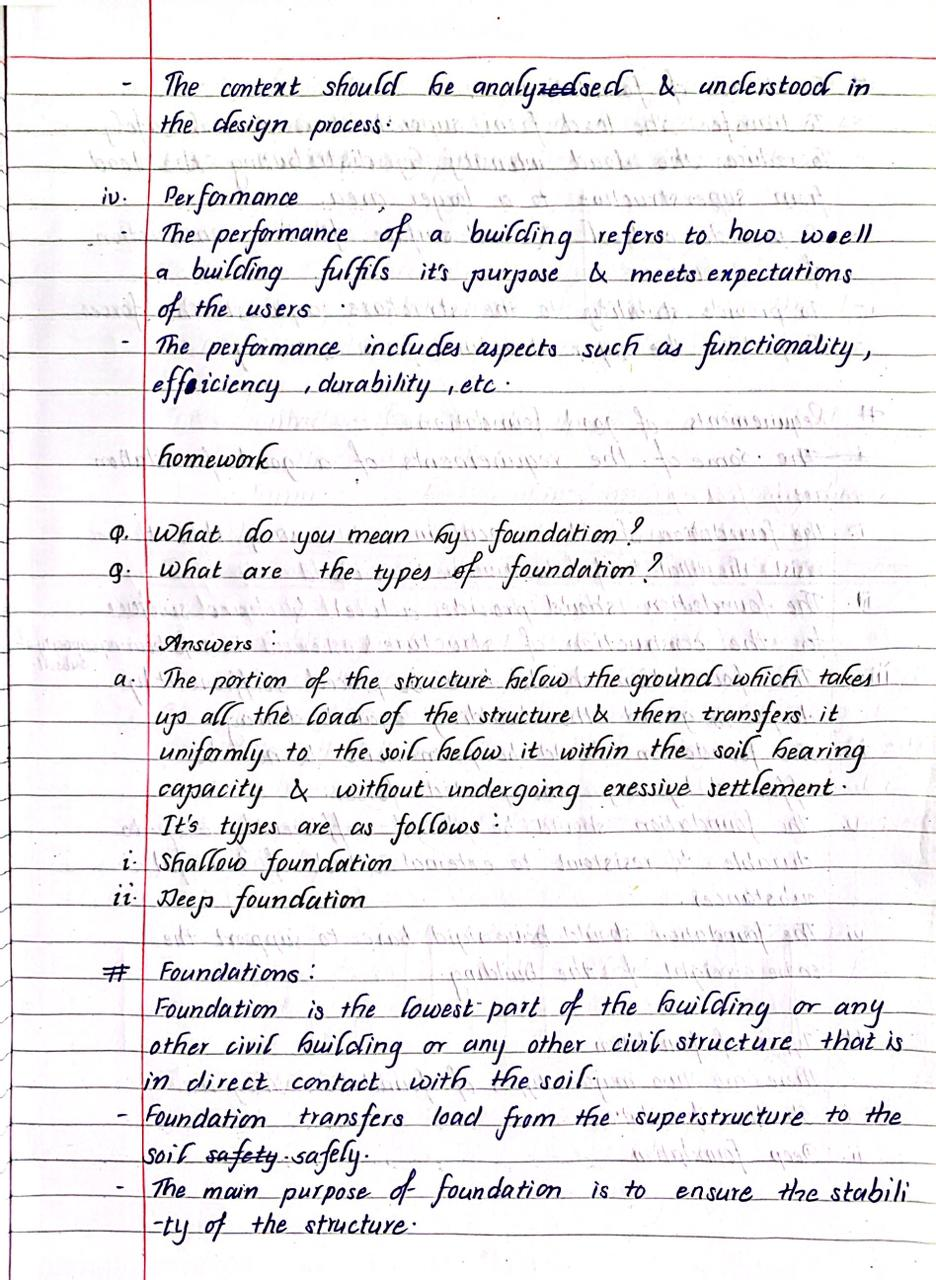 - The context should be analyzedsed & understood in
the design process.
iv. Performance
- The performance of a building refers to how well
a building fulfils it's purpose & meets expectations
of the users .
- The performance includes aspects such as functionality,
efficiency , durability , etc.
homework
Q. What do you mean by foundation?
Q. What are the types of foundation?
Answers :
a. The portion of the structure below the ground which takes
up all the load of the structure & then transfers it
uniformly to the soil below it within the soil bearing
capacity & without undergoing exessive settlement.
It's types are as follows :
i. Shallow foundation
ii. Deep foundation
# Foundations :
Foundation is the lowest part of the building or any
other civil building or any other civil structure that is
in direct contact with the soil.
- Foundation transfers load from the superstructure to the
soil safety. safely.
- The main purpose of foundation is to ensure the stabili
-ty of the structure.